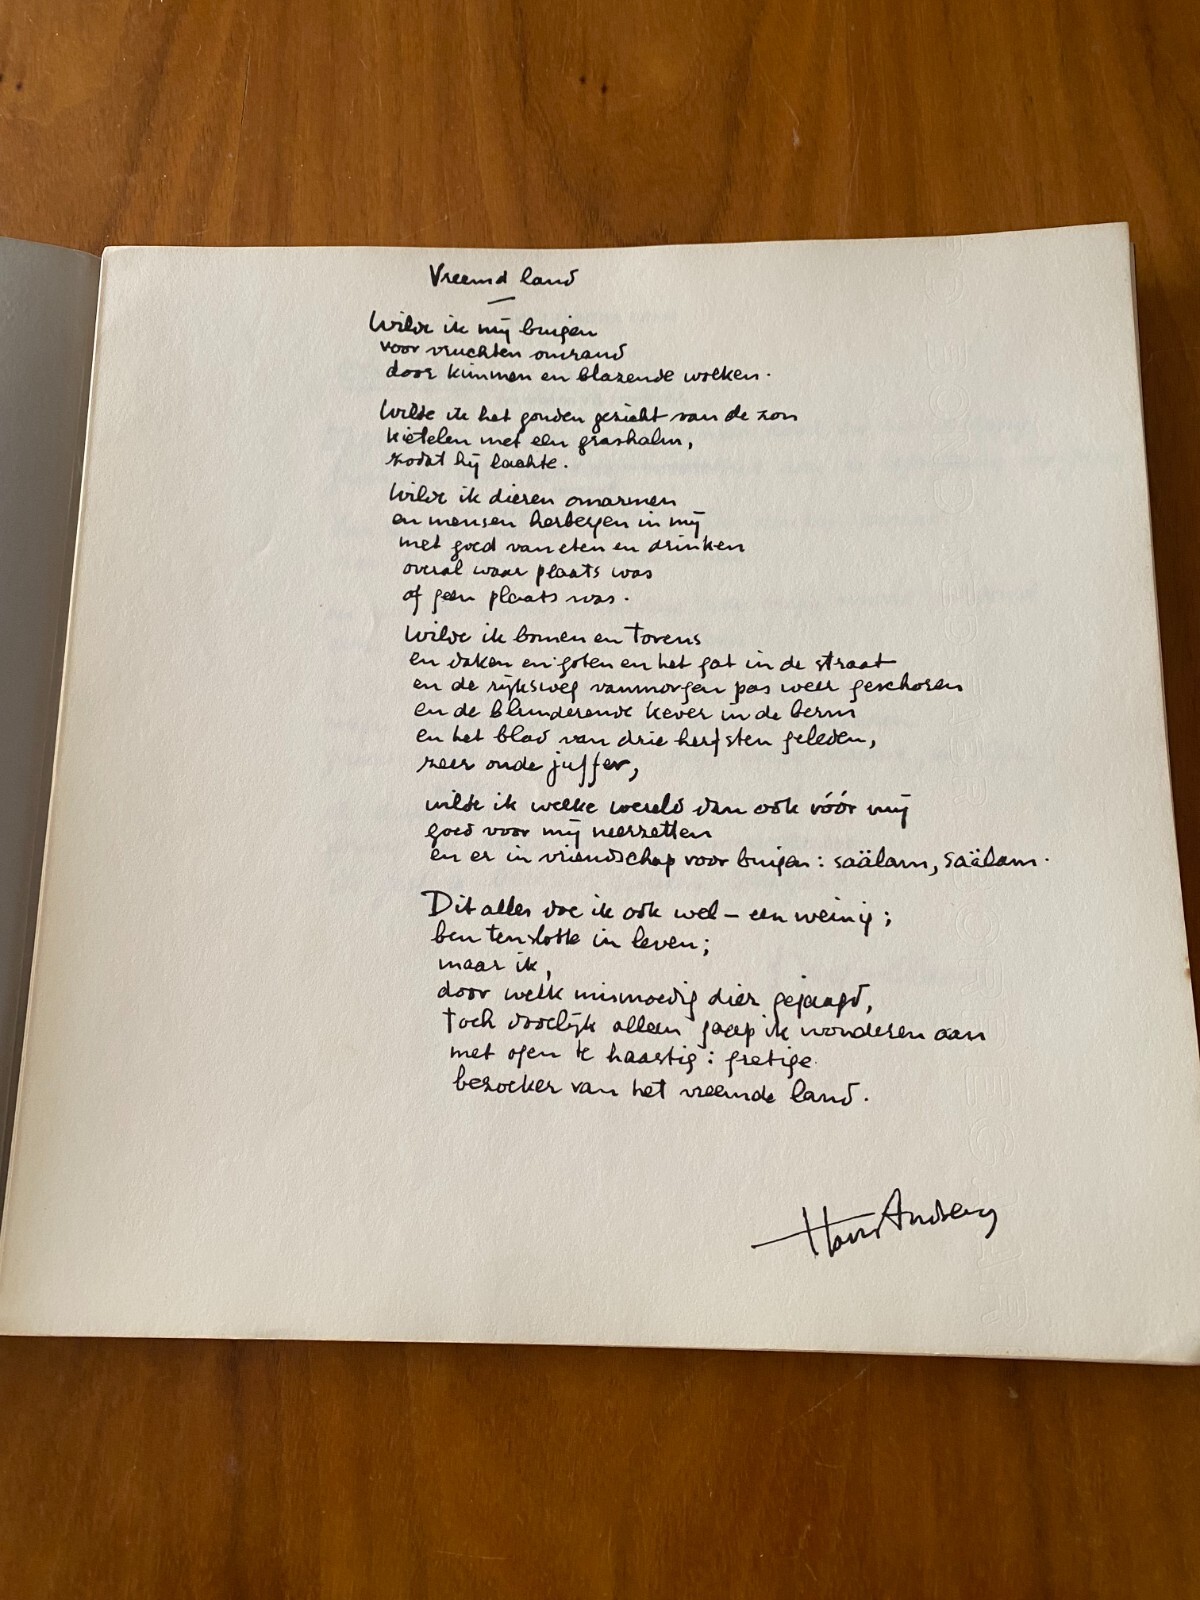 Vreemd land
Wilde ik mij buigen
voor vruchten omrand
door kimmen en blazende wolken.
Wilde ik het gouden gezicht van de zon
kietelen met een grashalm,
zodat hij lachte.
Wilde ik dieren omarmen
en mensen herbergen in mij
met goed van eten en drinken
overal waar plaats was
of geen plaats was.
Wilde ik bomen en torens
en daken en goten en het gat in de straat
en de rijksweg vanmorgen pas weer geschoren
en de blunderende kever in de berm
en het blad van drie herfsten geleden,
zeer oude juffer,
wilde ik welke wereld dan ook vóór mij
goed voor mij neerzetten
en er in vriendschap voor buigen: saälam, saälam.
Dit alles doe ik ook wel – een weinig;
ben tenslotte in leven;
maar ik,
door welk mismoedig dier gejaagd,
toch dodelijk alleen gaap ik wonderen aan
met ogen te haastig: gretige
bezoeker van het vreemde land.
Hans Andreus